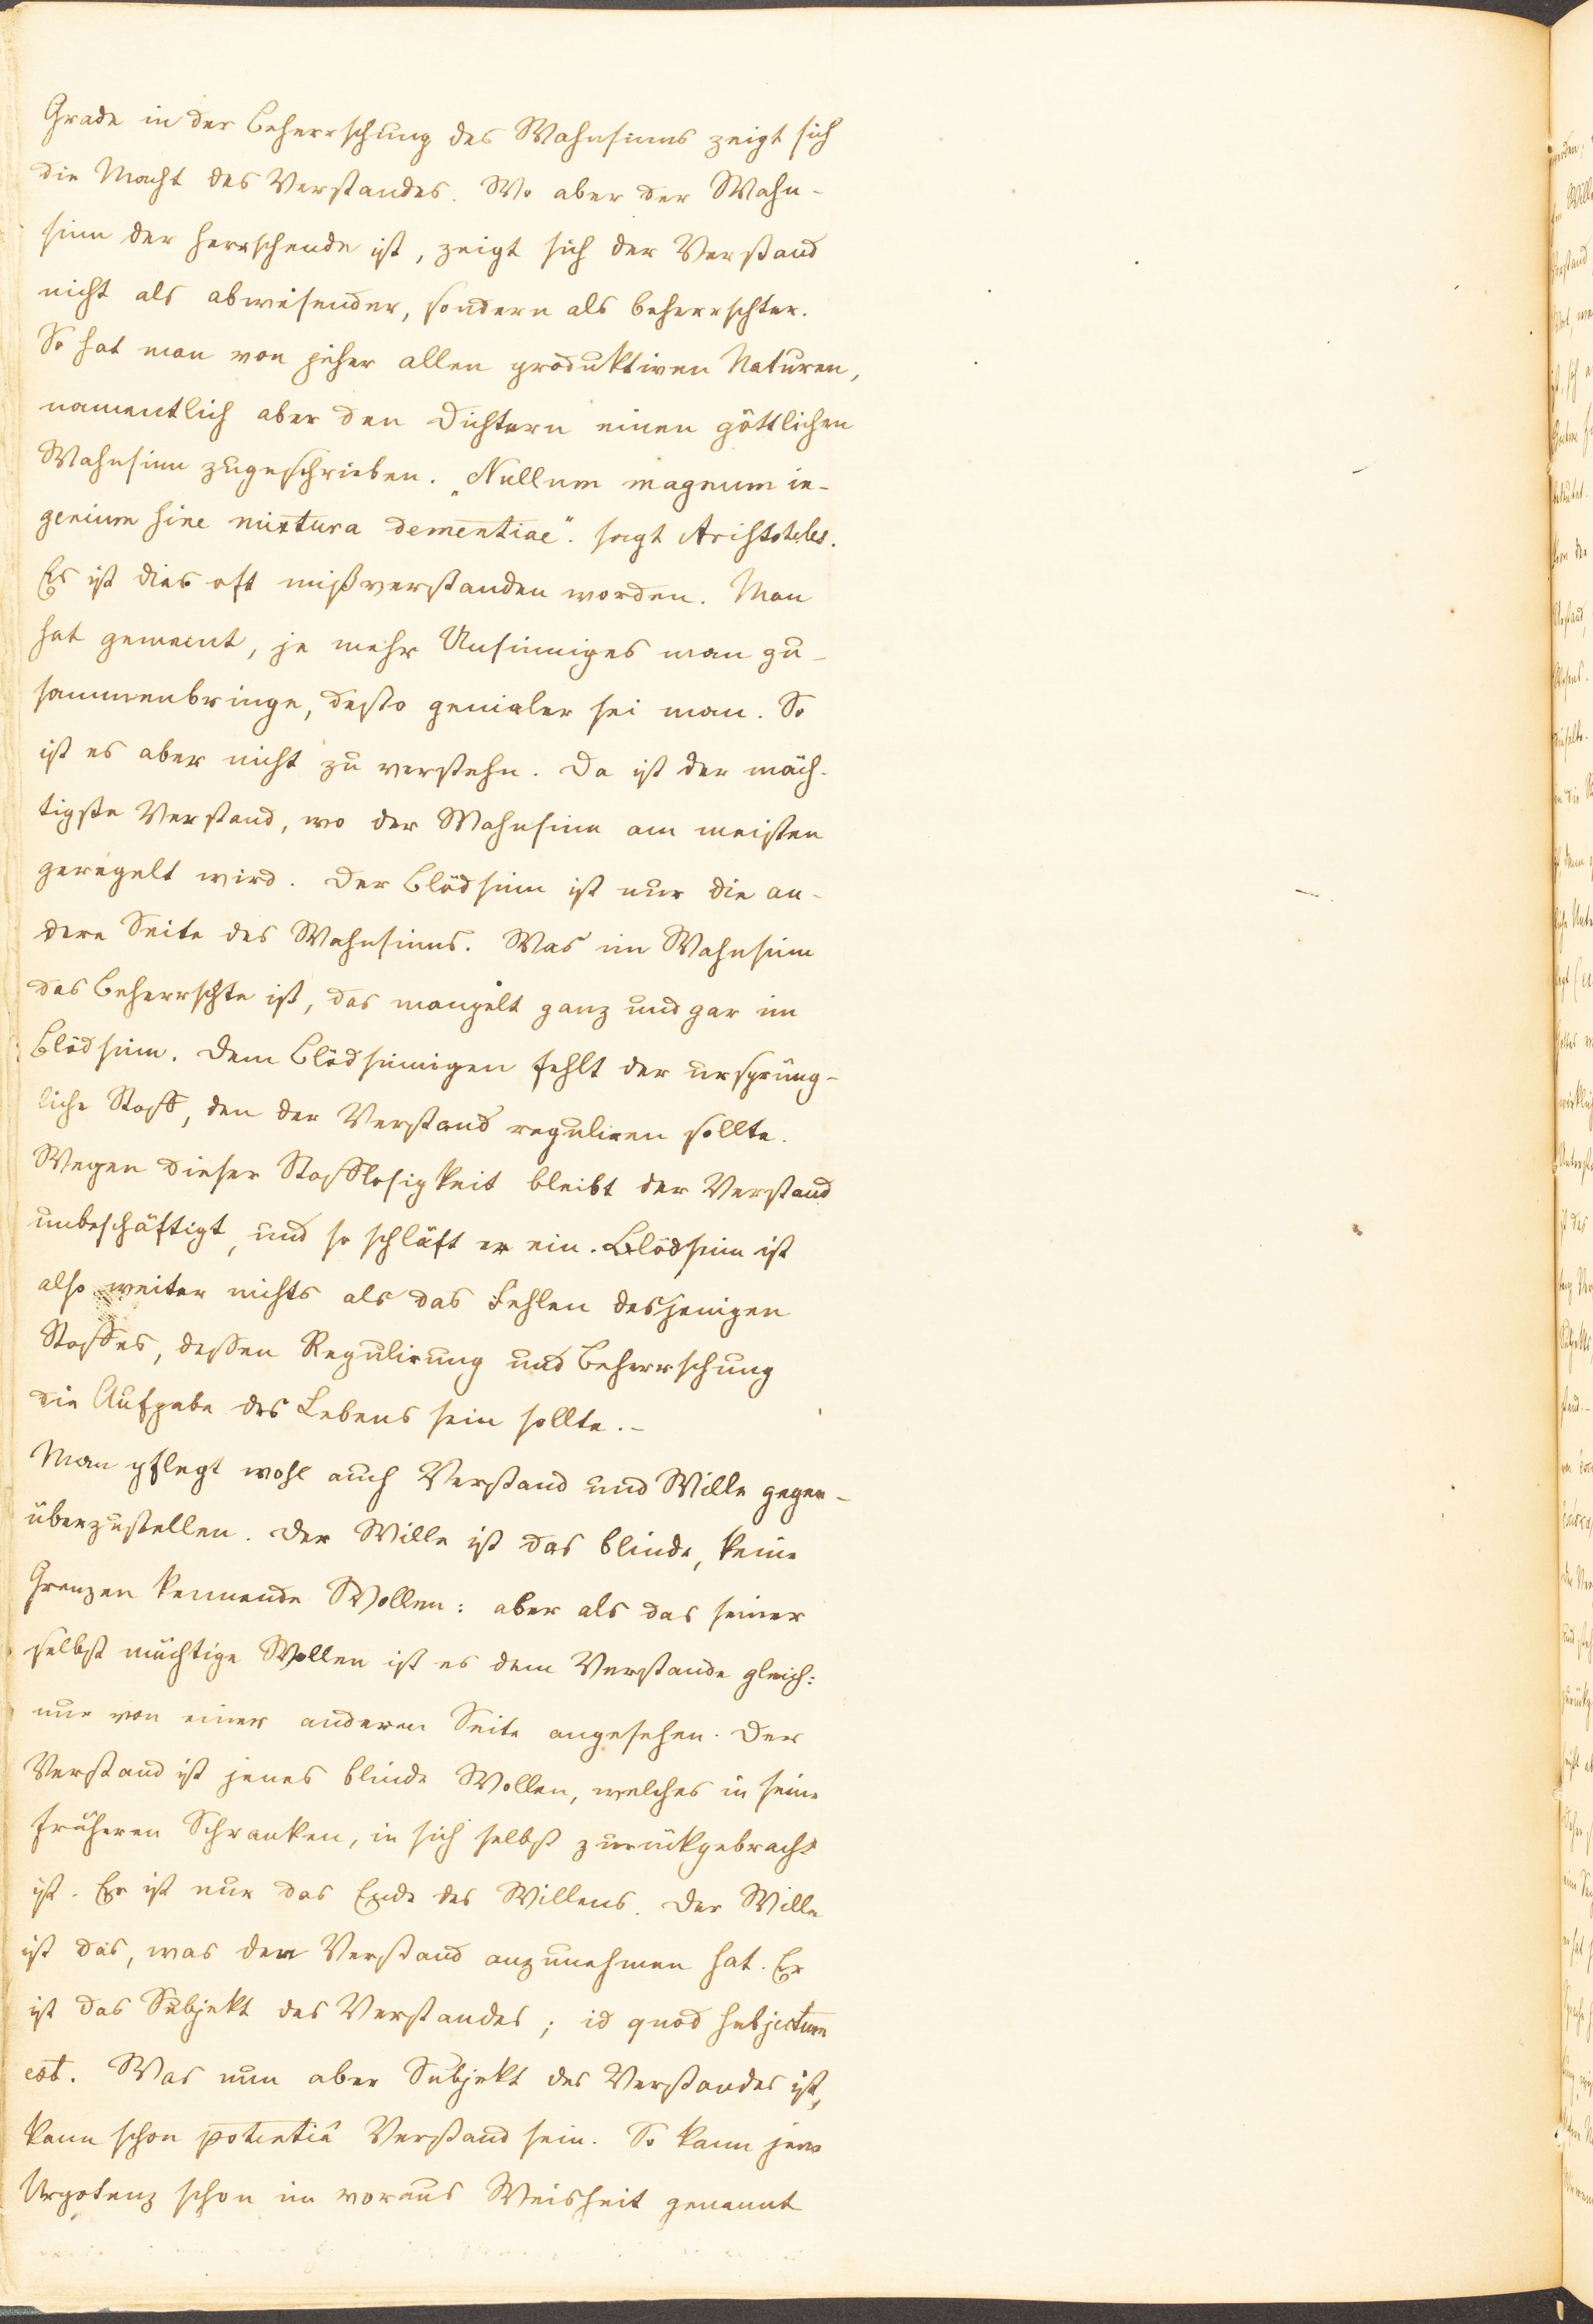 Grade in der Beherrschung des Wahnsinns zeigt sich
die Macht des Verstandes. Wo aber der Wahn-
sinn der herrschende ist, zeigt sich der Verstand
nicht als abwesender, sondern als beherrschter.
So hat man von jeher allen produktiven Naturen,
namentlich aber den Dichtern einen göttlichen
Wahnsinn zugeschrieben. „Nullum magnum in-
genium sine mixtura dementiae“. sagt Aristoteles.
Es ist dies oft mißverstanden worden. Man
hat gemeint, je mehr Unsinniges man zu-
sammenbringe, desto genialer sei man. So
ist es aber nicht zu verstehn. Da ist der mäch-
tigste Verstand, wo der Wahnsinn am meisten
geregelt wird. Der Blödsinn ist nur die an-
dere Seite des Wahnsinns. Was im Wahnsinn
das Beherrschte ist, das mangelt ganz und gar im
Blödsinn. Dem Blödsinnigen fehlt der ursprüng-
liche Stoff, den der Verstand reguliren sollte.
Wegen dieser Stofflosigkeit bleibt der Verstand
unbeschäftigt, und so schläft er ein. Blödsinn ist
also weiter nichts als das Fehlen desjenigen
Stoffes, dessen Regulirung und Beherrschung
die Aufgabe des Lebens sein sollte.-
Man pflegt wohl auch Verstand und Wille gegen-
überzustellen. Der Wille ist das blinde, keine
Grenzen kennende Wollen: aber als das seiner
selbst mächtige Wollen ist es dem Verstande gleich:
nur von einer anderen Seite angesehen. Der
Verstand ist jenes blinde Wollen, welches in seine
früheren Schranken, in sich selbst zurückgebracht
ist. Er ist nur das Ende des Willens. Der Wille
ist das, was den Verstand anzunehmen hat. Er
ist das Subjekt des Verstandes; id quod subjectum
est. Was nun aber Subjekt des Verstandes ist,
kann schon potentiâ Verstand sein. So kann jene
Urpotenz schon im voraus Weisheit genannt